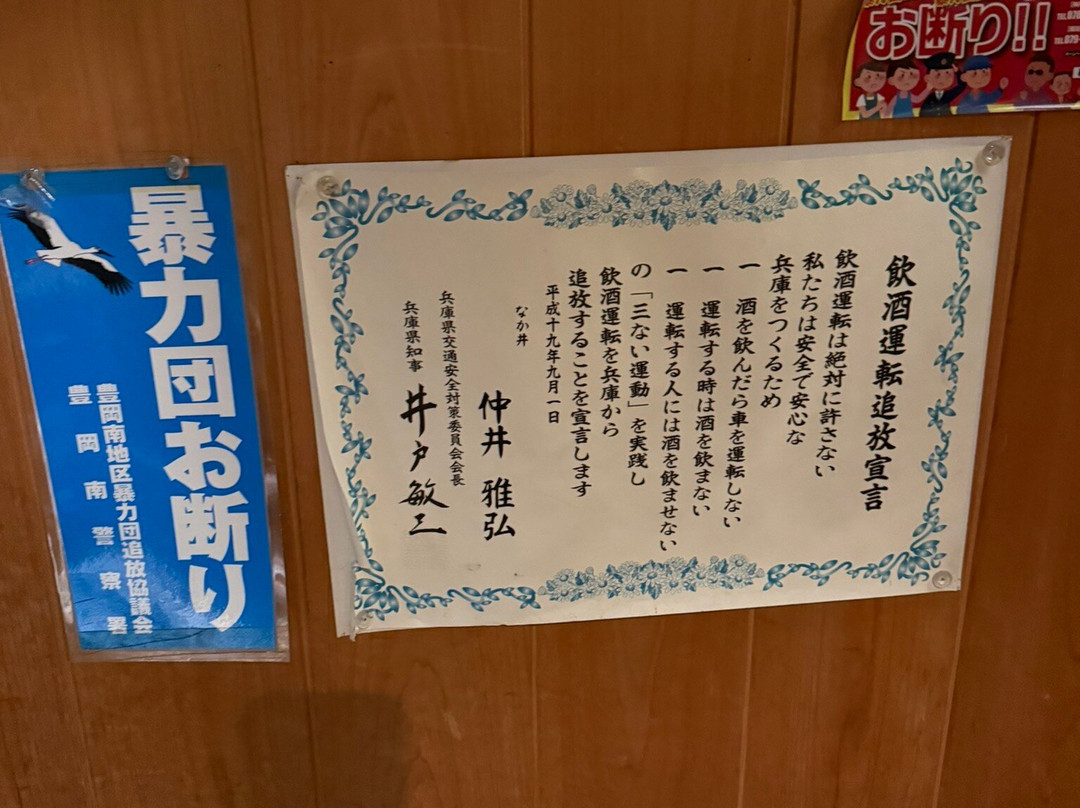 お断り!!
飲酒運転追放宣言
飲酒運転は絶対に許さない
私たちは安全で安心な
兵庫をつくるため
一 酒を飲んだら車を運転しない
一 運転する時は酒を飲まない
一 運転する人には酒を飲ませない
の「三ない運動」を実践し
飲酒運転を兵庫から
追放することを宣言します
平成十九年九月一日
なか井
仲井 雅弘
兵庫県交通安全対策委員会会長
兵庫県知事 井戸敏三
暴力団お断り
豊岡南地区暴力団追放協議会
豊岡南警察署